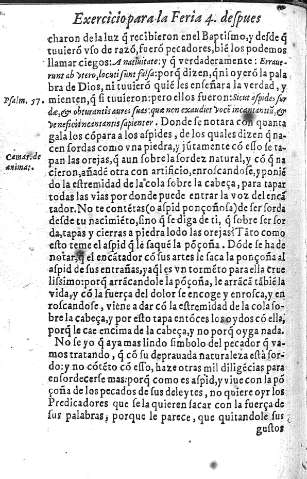 Exercicio para la Feria 4. despues
charon de la luz q̃ recibieron en el Baptismo, y desde q̃
tuuierō vso de razō, fuerō pecadores, biē los podemos
llamar ciegos: A natiuitate: y q̃ verdaderamente: Erraue-
runt ab vtero, locuti sunt falsa: porq̃ dizen, q̃ ni oyerō la pala
bra de Dios, ni tuuierō quiē les enseñara la verdad, y
Psalm. 57.
mienten, q̃ si tuuieron: pero ellos fueron: Sicut aspides sur
dæ, & obturantis aures suas: quæ non exaudiet vocē incantantiū, &
venefici incantantis sapienter. Donde se notara con quanta
gala los cōpara a los aspides, de los quales dizen q̃ na-
Camar. de
animat.
cen sordas como vna piedra, y jūtamente cō esso se ta-
pan las orejas, q̃ aun sobre la sordez natural, y cō q̃ na
cieron, añadē otra con artificio, enroscandose, y poniē
do la estremidad de la cola sobre la cabeça, para tapar
todas las vias por donde puede entrar la voz del encā
tador. No te contētas (o aspid ponçoñosa) de ser sorda
desde tu nacimiēto, sino q̃ se diga de ti, q̃ sobre ser sor
da, tapas y cierras a piedra lodo las orejas? Tāto como
esto teme el aspid q̃ le saquē la pōçoña. Dōde se ha de
notar, q̃ el encātador cō sus artes le saca la ponçoña al
aspid de sus entrañas, y aq̃l es vn tormēto para ella crue
lissimo: porq̃ arrācandole la pōçoña, le arrācā tābiē la
vida, y cō la fuerça del dolor se encoge y enrosca, y en
roscandose, viene a dar cō la estremidad de la cola so-
bre la cabeça, y por esto tapa entōces luego y dos cō ella,
porq̃ le cae encima de la cabeça, y no porq̃ oyga nada.
No se yo q̃ aya mas lindo simbolo del pecador q̃ va-
mos tratando, q̃ cō su deprauada naturaleza està sor-
do; y no cōtēto cō esso, haze otras mil diligēcias para
ensordecerse mas: porq̃ como es aspid, y viue con la pō
çoña de los pecados de sus deleytes, no quiere oyr los
Predicadores que se la quieren sacar con la fuerça de
sus palabras, porque le parece, que quitandole sus
gustos